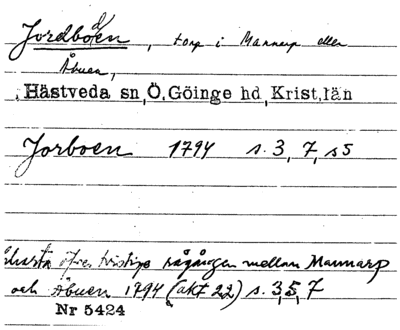 Jordboen, torp i Mannarp eller
Åbuen,
Hästveda sn, Ö. Göinge hd, Krist. län
Jorboen 1794 s. 3, 7, s5
Charta öfver tvistige rågången mellan Mannarp
och Åbuen 1794 (akt 22) s. 3, 5, 7
Nr 5424